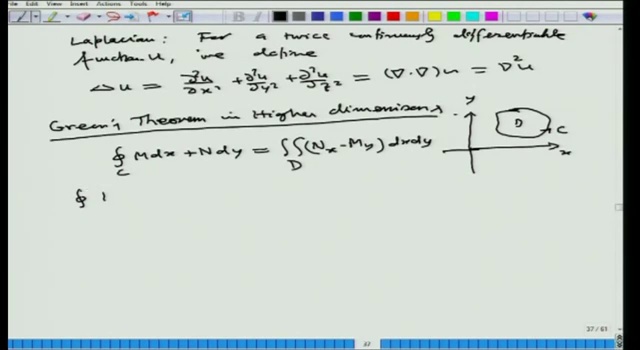 File Edit View Insert Actions Tools Help
Laplacian: For a twice continuously differentiable
function u, we define
Δu = ∂²u/∂x² + ∂²u/∂y² + ∂²u/∂z² = (∇·∇)u = ∇²u
Green's Theorem in Higher dimensions.
∮_C Mdx + Ndy = ∬_D (N_x - M_y) dxdy
y
D
C
x
∮
37 / 61
37